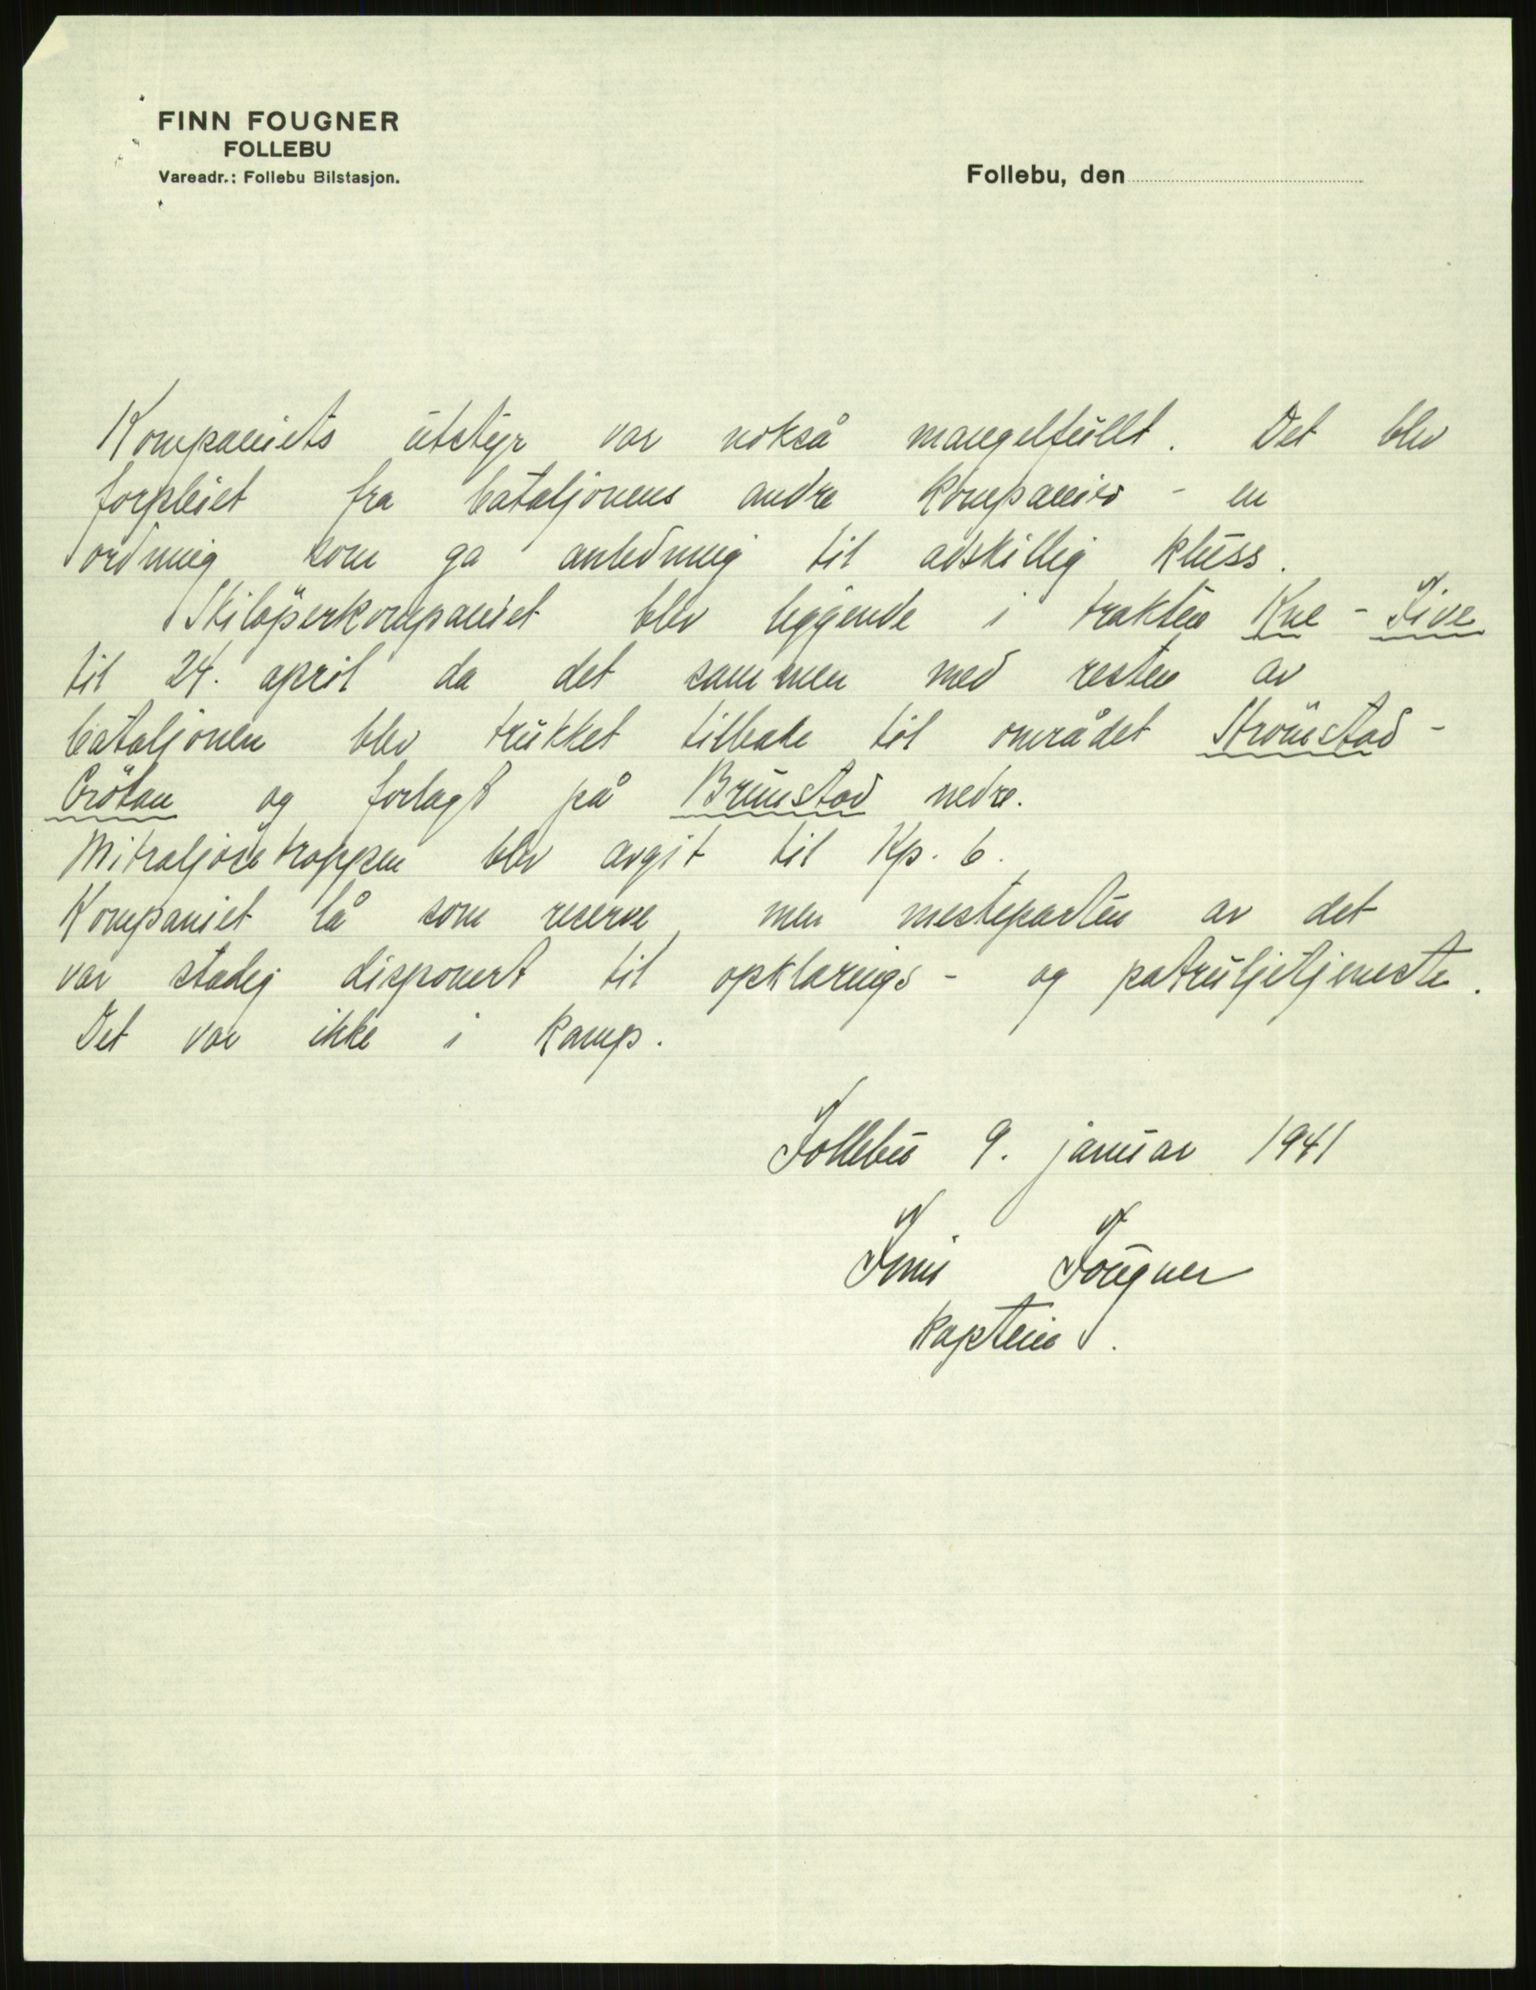 FINN FOUGNER
FOLLEBU
Vareadr.: Follebu Bilstasjon.
Follebu, den
Kompaniets utstyr var nokså mangelfullt. Det blev
forpleiet fra bataljonens andre kompanier - en
ordning som ga anledning til adskillig kluss.
Skiløperkompaniet blev liggende i trakten Kve - Five
til 24. april da det sammen med resten av
bataljonen blev trukket tilbake til området Strömstad -
Grötan og forlagt på Brunstad nedre.
Mitraljøsetroppen blev avgit til Kp. 6.
Kompaniet lå som reserve, men mesteparten av det
var stadig disponert til opklarings- og patruljetjeneste.
Det var ikke i kamp.
Follebu 9. januar 1941
Finn Fougner
kaptein.